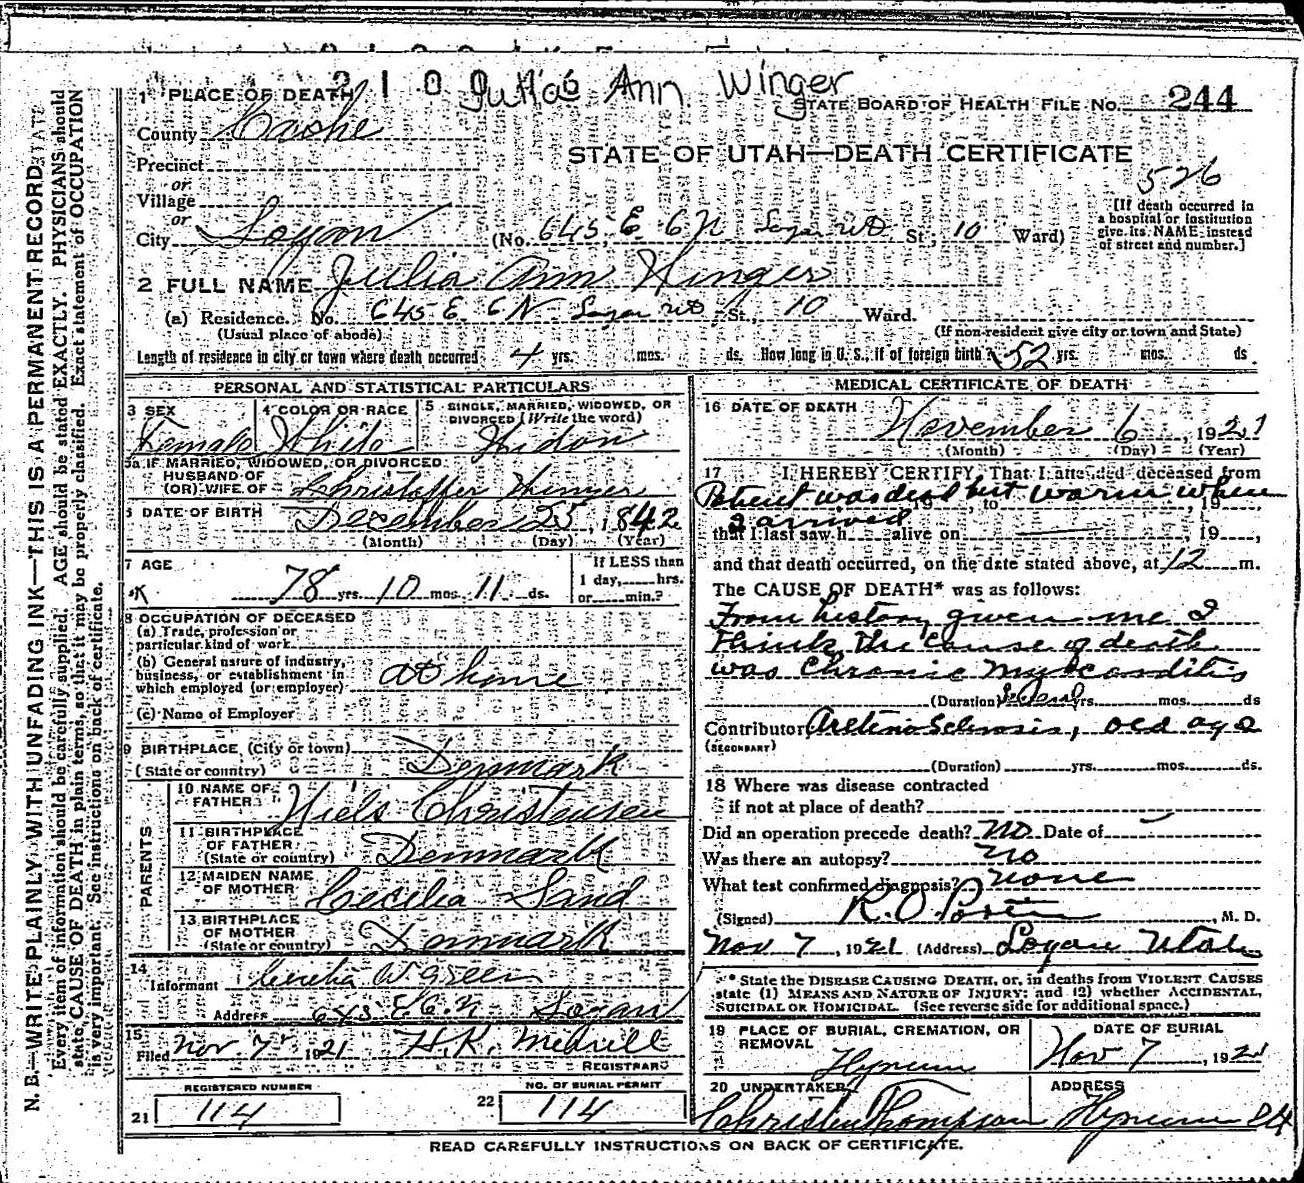 2100 Julia Ann Winger
1 PLACE OF DEATH
STATE BOARD OF HEALTH FILE NO. 244
County Cache
STATE OF UTAH—DEATH CERTIFICATE
526
Precinct
or
Village
or
City Logan (No. 645 E. 6 N St; 10 Ward)
[If death occurred in
a hospital or institution
give its NAME instead
of street and number.]
2 FULL NAME Julia Ann Winger
(a) Residence. No. 645 E. 6 N St., 10 Ward.
(Usual place of abode) (If non-resident give city or town and State)
Length of residence in city or town where death occurred 4 yrs. mos. ds. How long in U. S., if of foreign birth? 52 yrs. mos. ds
PERSONAL AND STATISTICAL PARTICULARS
3 SEX Female
4 COLOR OR RACE White
5 SINGLE, MARRIED, WIDOWED, OR
DIVORCED (Write the word)
Widow
5a IF MARRIED, WIDOWED, OR DIVORCED
HUSBAND OF
(OR) WIFE OF Christoffer Winger
6 DATE OF BIRTH December 25, 1842
(Month) (Day) (Year)
7 AGE
78 yrs. 10 mos. 11 ds.
If LESS than
1 day, hrs.
or min.?
8 OCCUPATION OF DECEASED
(a) Trade, profession or
particular kind of work
(b) General nature of industry,
business, or establishment in
which employed (or employer) at home
(c) Name of Employer
9 BIRTHPLACE (City or town)
(State or country) Denmark
PARENTS
10 NAME OF
FATHER Niels Christensen
11 BIRTHPLACE
OF FATHER
(State or country) Denmark
12 MAIDEN NAME
OF MOTHER Cecilia Sand
13 BIRTHPLACE
OF MOTHER
(State or country) Denmark
14
Informant Green
Address 645 E 6 N Logan
15
Filed Nov 7 1921 H.K. Merrill
REGISTRAR
REGISTERED NUMBER
21 114
NO. OF BURIAL PERMIT
22 114
MEDICAL CERTIFICATE OF DEATH
16 DATE OF DEATH
November 6, 1921
(Month) (Day) (Year)
17 I HEREBY CERTIFY, That I attended deceased from
Patient was dead but warm when
19 , to , 19 ,
I arrived
that I last saw h alive on , 19 ,
and that death occurred, on the date stated above, at 12 m.
The CAUSE OF DEATH* was as follows:
From history given me I
think the cause of death
was Chronic Myocarditis
(Duration) yrs. mos. ds
Contributory Arterio Sclerosis, old age
(SECONDARY)
(Duration) yrs. mos. ds.
18 Where was disease contracted
if not at place of death?
Did an operation precede death? No Date of
Was there an autopsy? No
What test confirmed diagnosis? None
(Signed) R. O. Porter, M. D.
Nov 7, 1921 (Address) Logan Utah
* State the DISEASE CAUSING DEATH, or, in deaths from VIOLENT CAUSES
state (1) MEANS AND NATURE OF INJURY; and (2) whether ACCIDENTAL,
SUICIDAL OR HOMICIDAL. (See reverse side for additional space.)
19 PLACE OF BURIAL, CREMATION, OR
REMOVAL
Hyrum
DATE OF BURIAL
Nov 7, 1921
20 UNDERTAKER
Christen Thompson
ADDRESS
Hyrum
READ CAREFULLY INSTRUCTIONS ON BACK OF CERTIFICATE.
N. B.—WRITE PLAINLY WITH UNFADING INK—THIS IS A PERMANENT RECORD
Every item of information should be carefully supplied. AGE should be stated EXACTLY. PHYSICIANS should
state CAUSE OF DEATH in plain terms, so that it may be properly classified. Exact statement of OCCUPATION
is very important. See instructions on back of certificate.